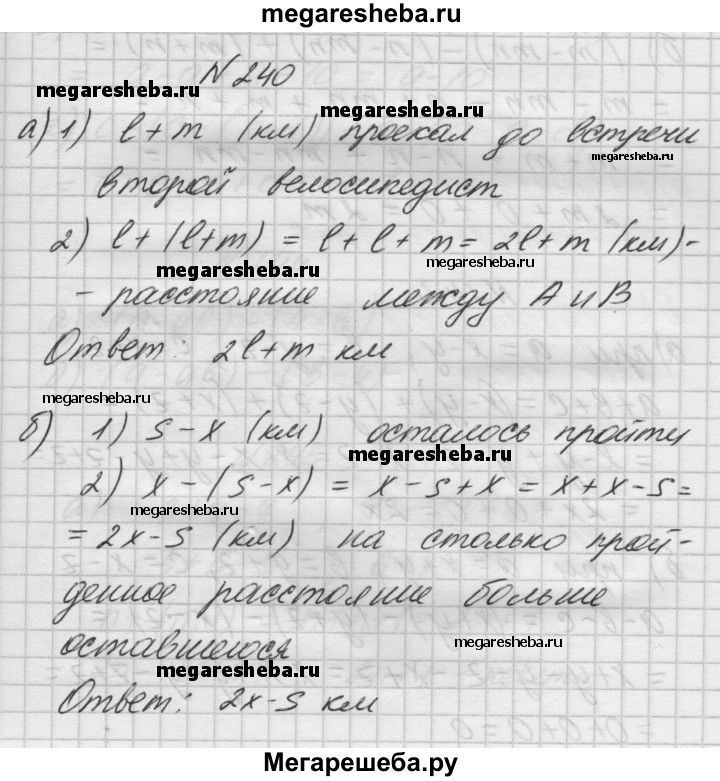 megaresheba.ru
N 240
megaresheba.ru
megaresheba.ru
а) 1) l + m (км) проехал до встречи
megaresheba.ru
второй велосипедист
2) l + (l+m) = l + l + m = 2l + m (км)-
megaresheba.ru
megaresheba.ru
- расстояние между А и В
Ответ: 2l+m км
megaresheba.ru
б) 1) S - x (км) осталось пройти
megaresheba.ru
2) x - (S-x) = x - S + x = x + x - S =
megaresheba.ru
= 2x - S (км) на столько прой-
денное расстояние больше
оставшегося
megaresheba.ru
megaresheba.ru
Ответ: 2x-S км
Мегарешеба.ру